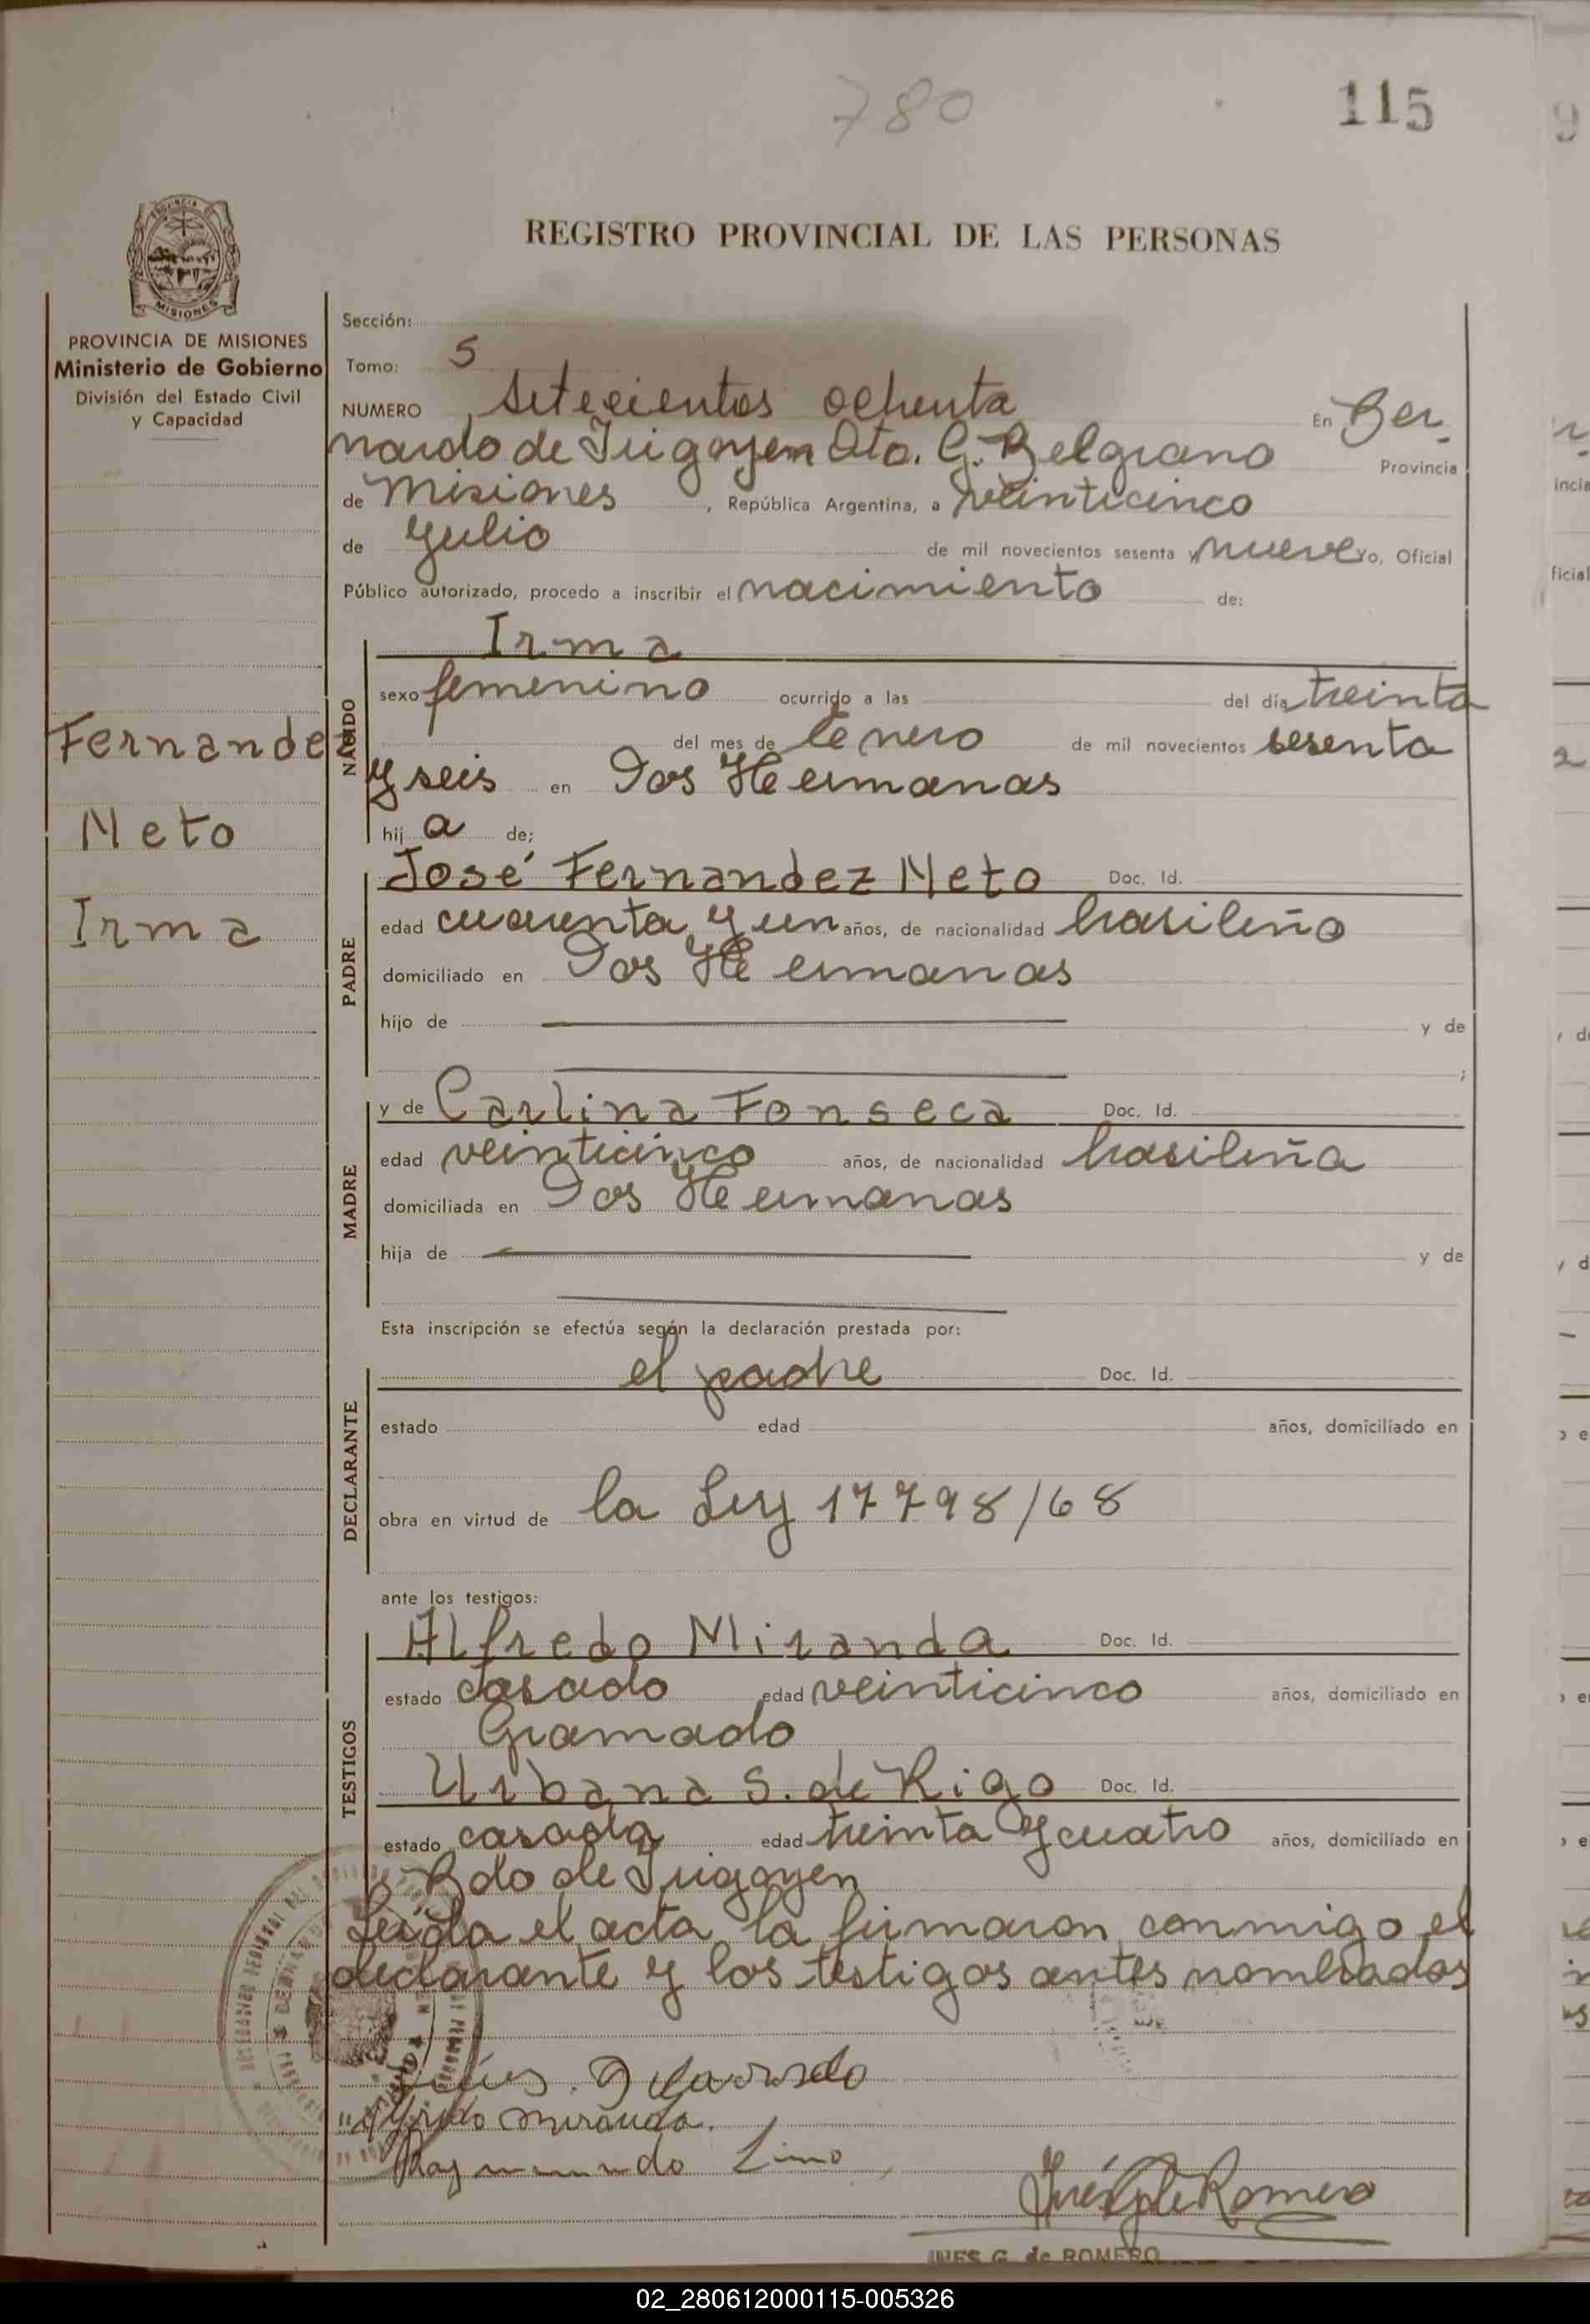 780
115
REGISTRO PROVINCIAL DE LAS PERSONAS
MISIONES
PROVINCIA DE MISIONES
Ministerio de Gobierno
División del Estado Civil
y Capacidad
Fernandez
Neto
Irma
Sección:
Tomo: 5
NUMERO Setecientos ochenta En Ber-
nardo de Irigoyen Dto. G. Belgrano Provincia
de Misiones, República Argentina, a veinticinco
de Julio de mil novecientos sesenta y nueve Yo, Oficial
Público autorizado, procedo a inscribir el nacimiento de:
NACIDO
Irma
sexo femenino ocurrido a las del día treinta
del mes de Enero de mil novecientos sesenta
y seis en Dos Hermanas
hij a de;
PADRE
José Fernandez Neto Doc. Id.
edad cuarenta y un años, de nacionalidad brasileño
domiciliado en Dos Hermanas
hijo de y de
;
MADRE
y de Carlina Fonseca Doc. Id.
edad veinticinco años, de nacionalidad brasileña
domiciliada en Dos Hermanas
hija de y de
Esta inscripción se efectúa según la declaración prestada por:
DECLARANTE
el padre Doc. Id.
estado edad años, domiciliado en
obra en virtud de la Ley 17798/68
ante los testigos:
TESTIGOS
Alfredo Miranda Doc. Id.
estado casado edad veinticinco años, domiciliado en
Gramado
Urbana S. de Rigo Doc. Id.
estado casada edad treinta y cuatro años, domiciliado en
Bdo de Irigoyen
Leída el acta la firmaron conmigo el
declarante y los testigos antes nombrados
Alfredo Miranda.
Raymundo Lima
Inés G de Romero
INES G. de ROMERO
02_280612000115-005326